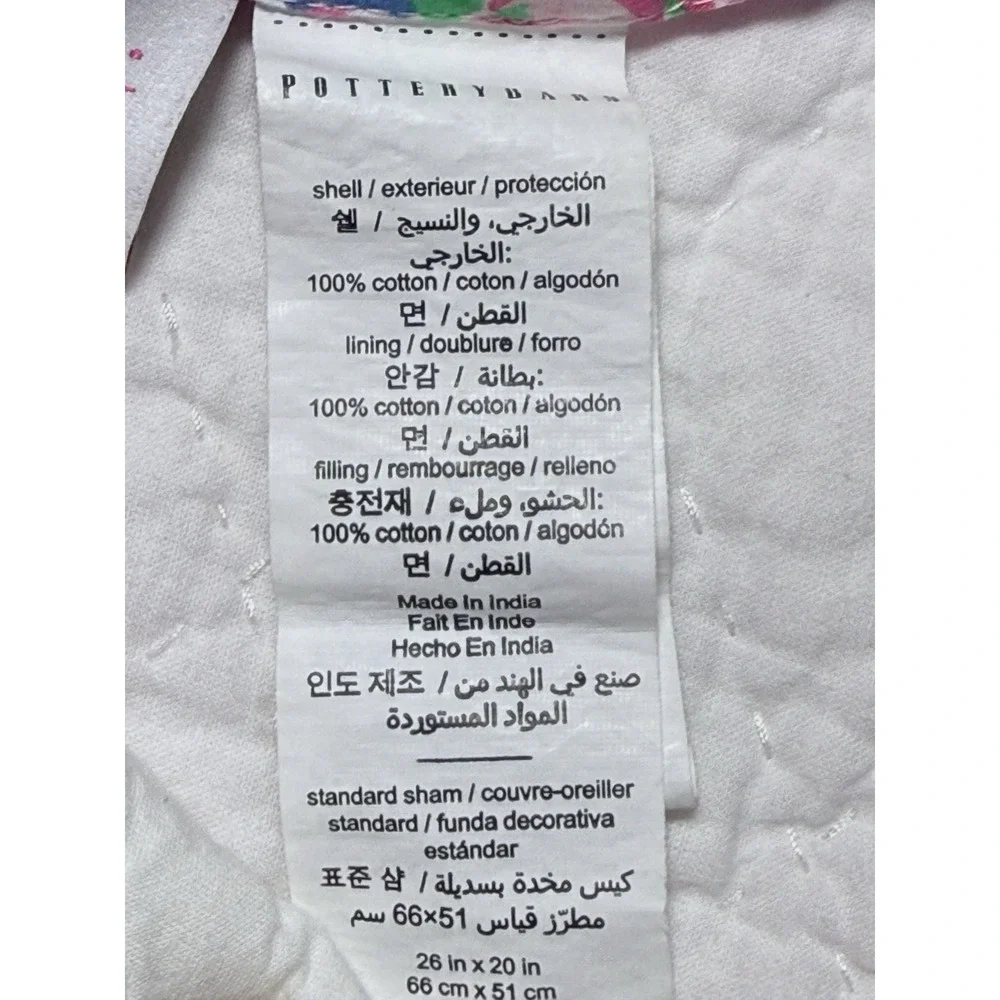 POTTERY BARN
shell / exterieur / protección
쉘 / الخارجي، والنسيج
الخارجي:
100% cotton / coton / algodón
면 / القطن
lining / doublure / forro
안감 / بطانة:
100% cotton / coton / algodón
면 / القطن
filling / rembourrage / relleno
충전재 / الحشو، وملء:
100% cotton / coton / algodón
면 / القطن
Made In India
Fait En Inde
Hecho En India
인도 제조 / صنع في الهند من
المواد المستوردة
standard sham / couvre-oreiller
standard / funda decorativa
estándar
표준 샴 / كيس مخدة بسديلة
مطرّز قياس 51×66 سم
26 in x 20 in
66 cm x 51 cm